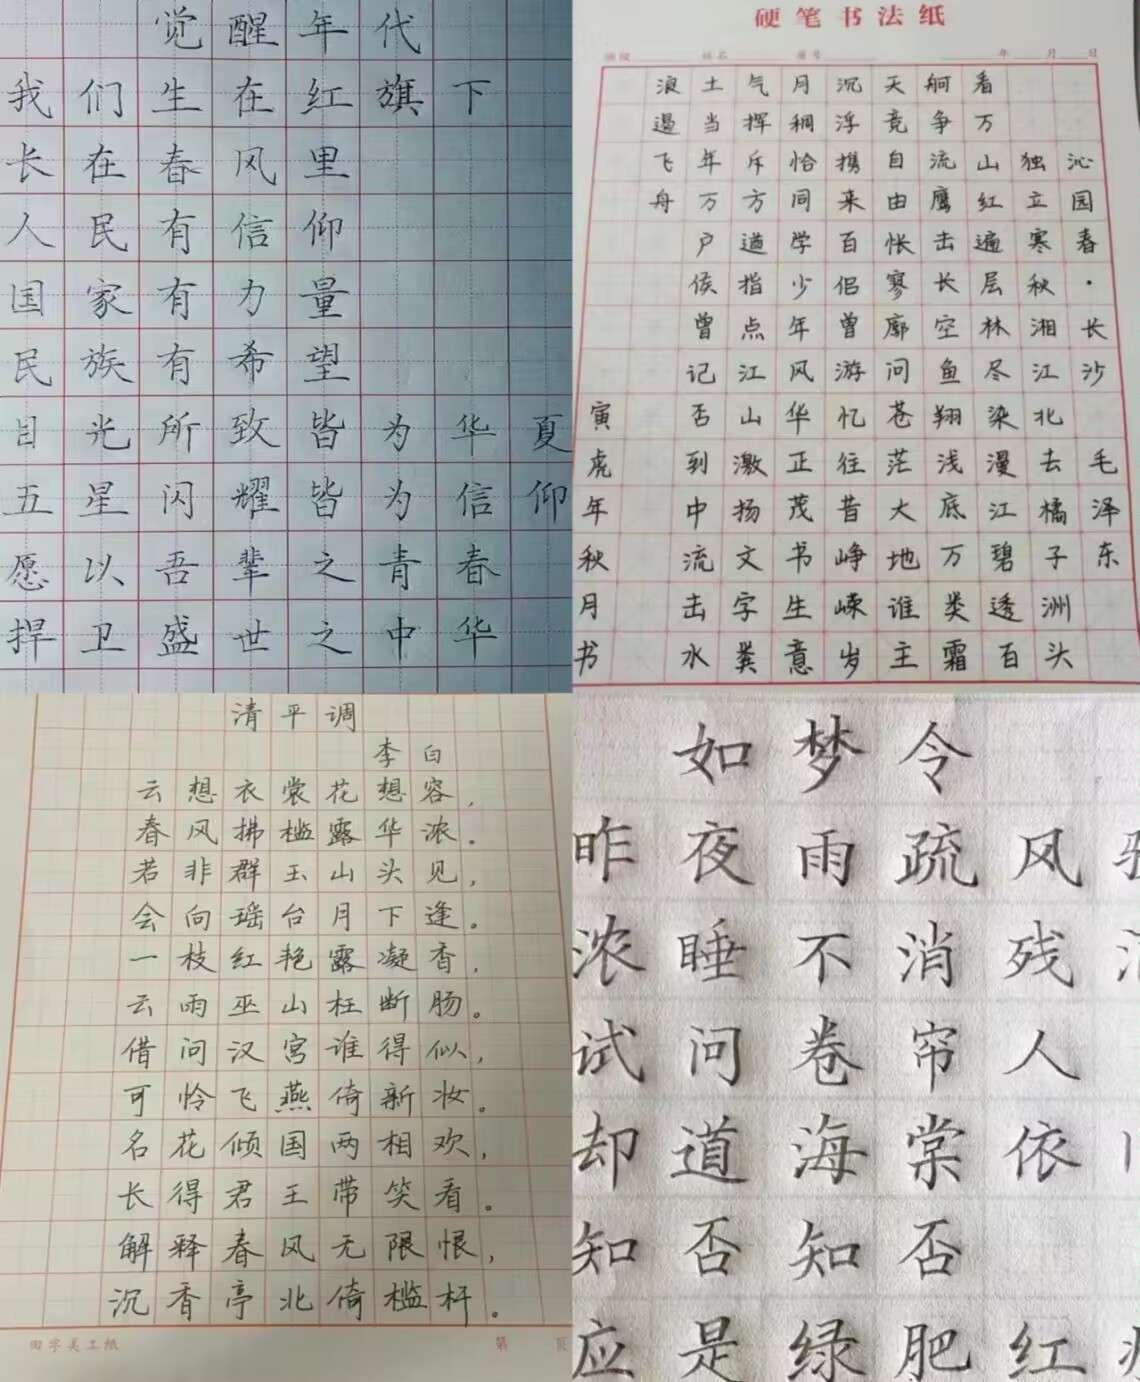 觉醒年代
我们生在红旗下
长在春风里
人民有信仰
国家有力量
民族有希望
目光所致皆为华夏
五星闪耀皆为信仰
愿以吾辈之青春
捍卫盛世之中华
硬笔书法纸
姓名 年 月 日
沁园春·长沙 毛泽东
独立寒秋湘江北去橘子洲头
看万山红遍层林尽染漫江碧透百
舸争流鹰击长空鱼翔浅底万类霜
天竞自由怅寥廓问苍茫大地谁主
沉浮携来百侣曾游忆往昔峥嵘岁
月稠恰同学少年风华正茂书生意
气挥斥方遒指点江山激扬文字粪
土当年万户侯曾记否到中流击水
浪遏飞舟
寅虎年秋月书
清平调
李白
云想衣裳花想容,
春风拂槛露华浓。
若非群玉山头见,
会向瑶台月下逢。
一枝红艳露凝香,
云雨巫山枉断肠。
借问汉宫谁得似,
可怜飞燕倚新妆。
名花倾国两相欢,
长得君王带笑看。
解释春风无限恨,
沉香亭北倚槛杆。
田字美工纸 第 页
如梦令
昨夜雨疏风
浓睡不消残
试问卷帘人
却道海棠依
知否知否
应是绿肥红